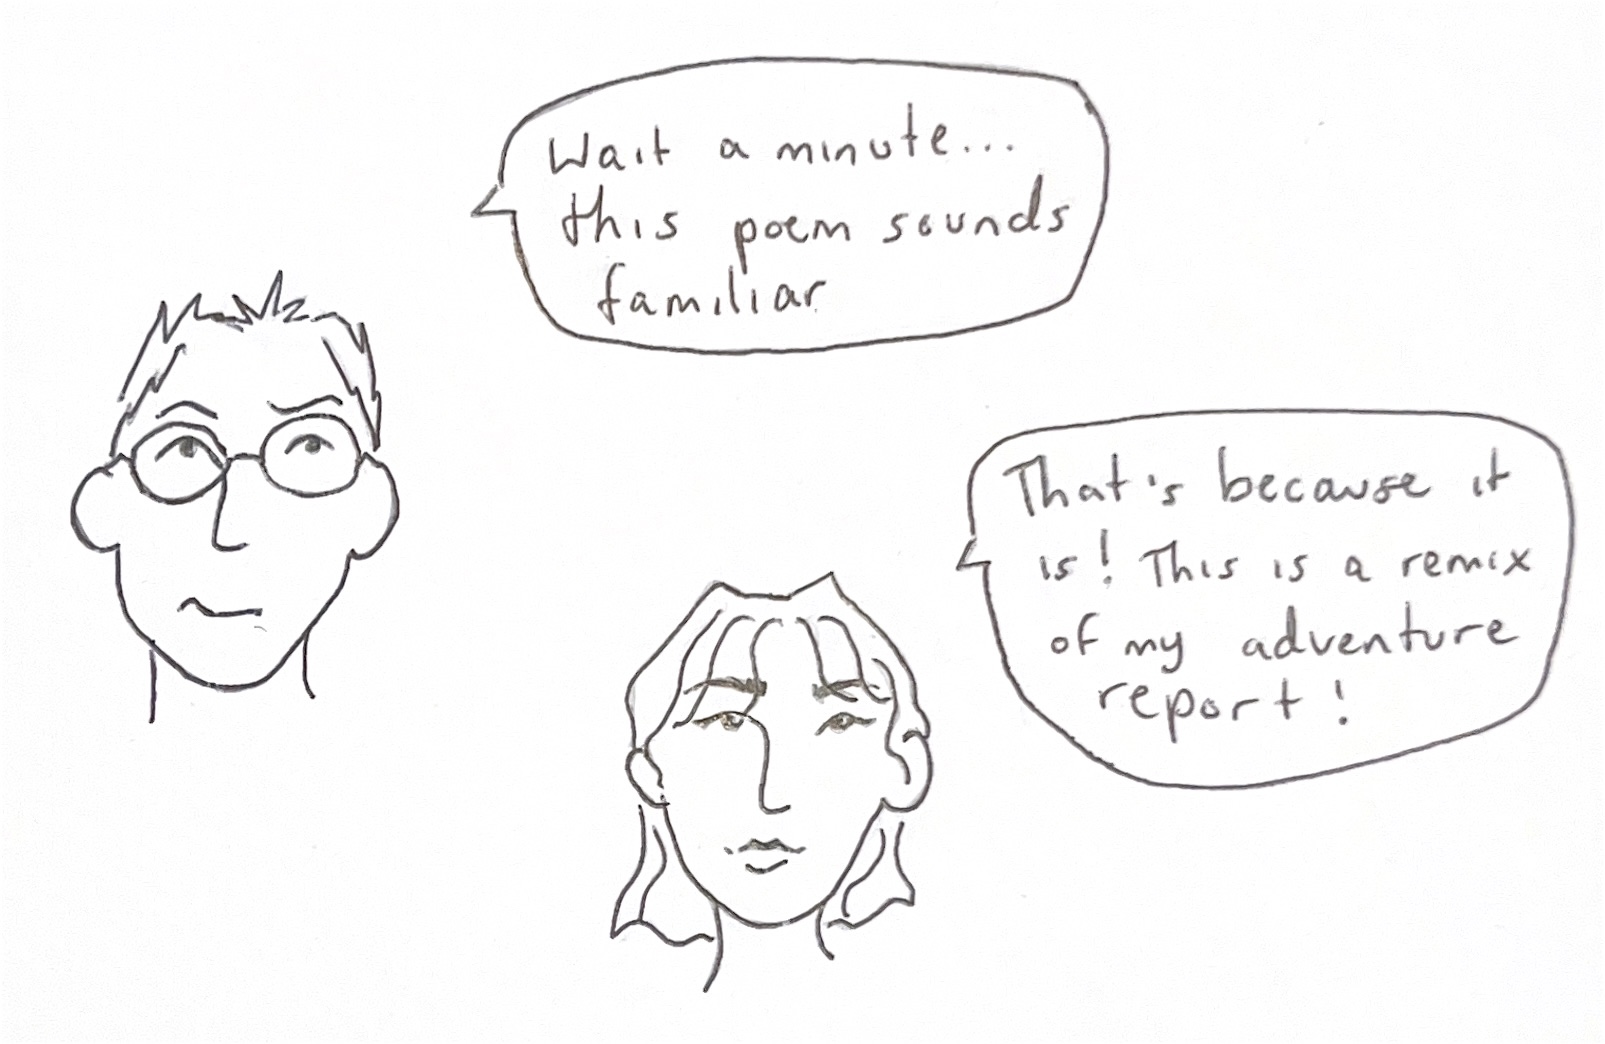 Wait a minute...
this poem sounds
familiar
That's because it
is! This is a remix
of my adventure
report!